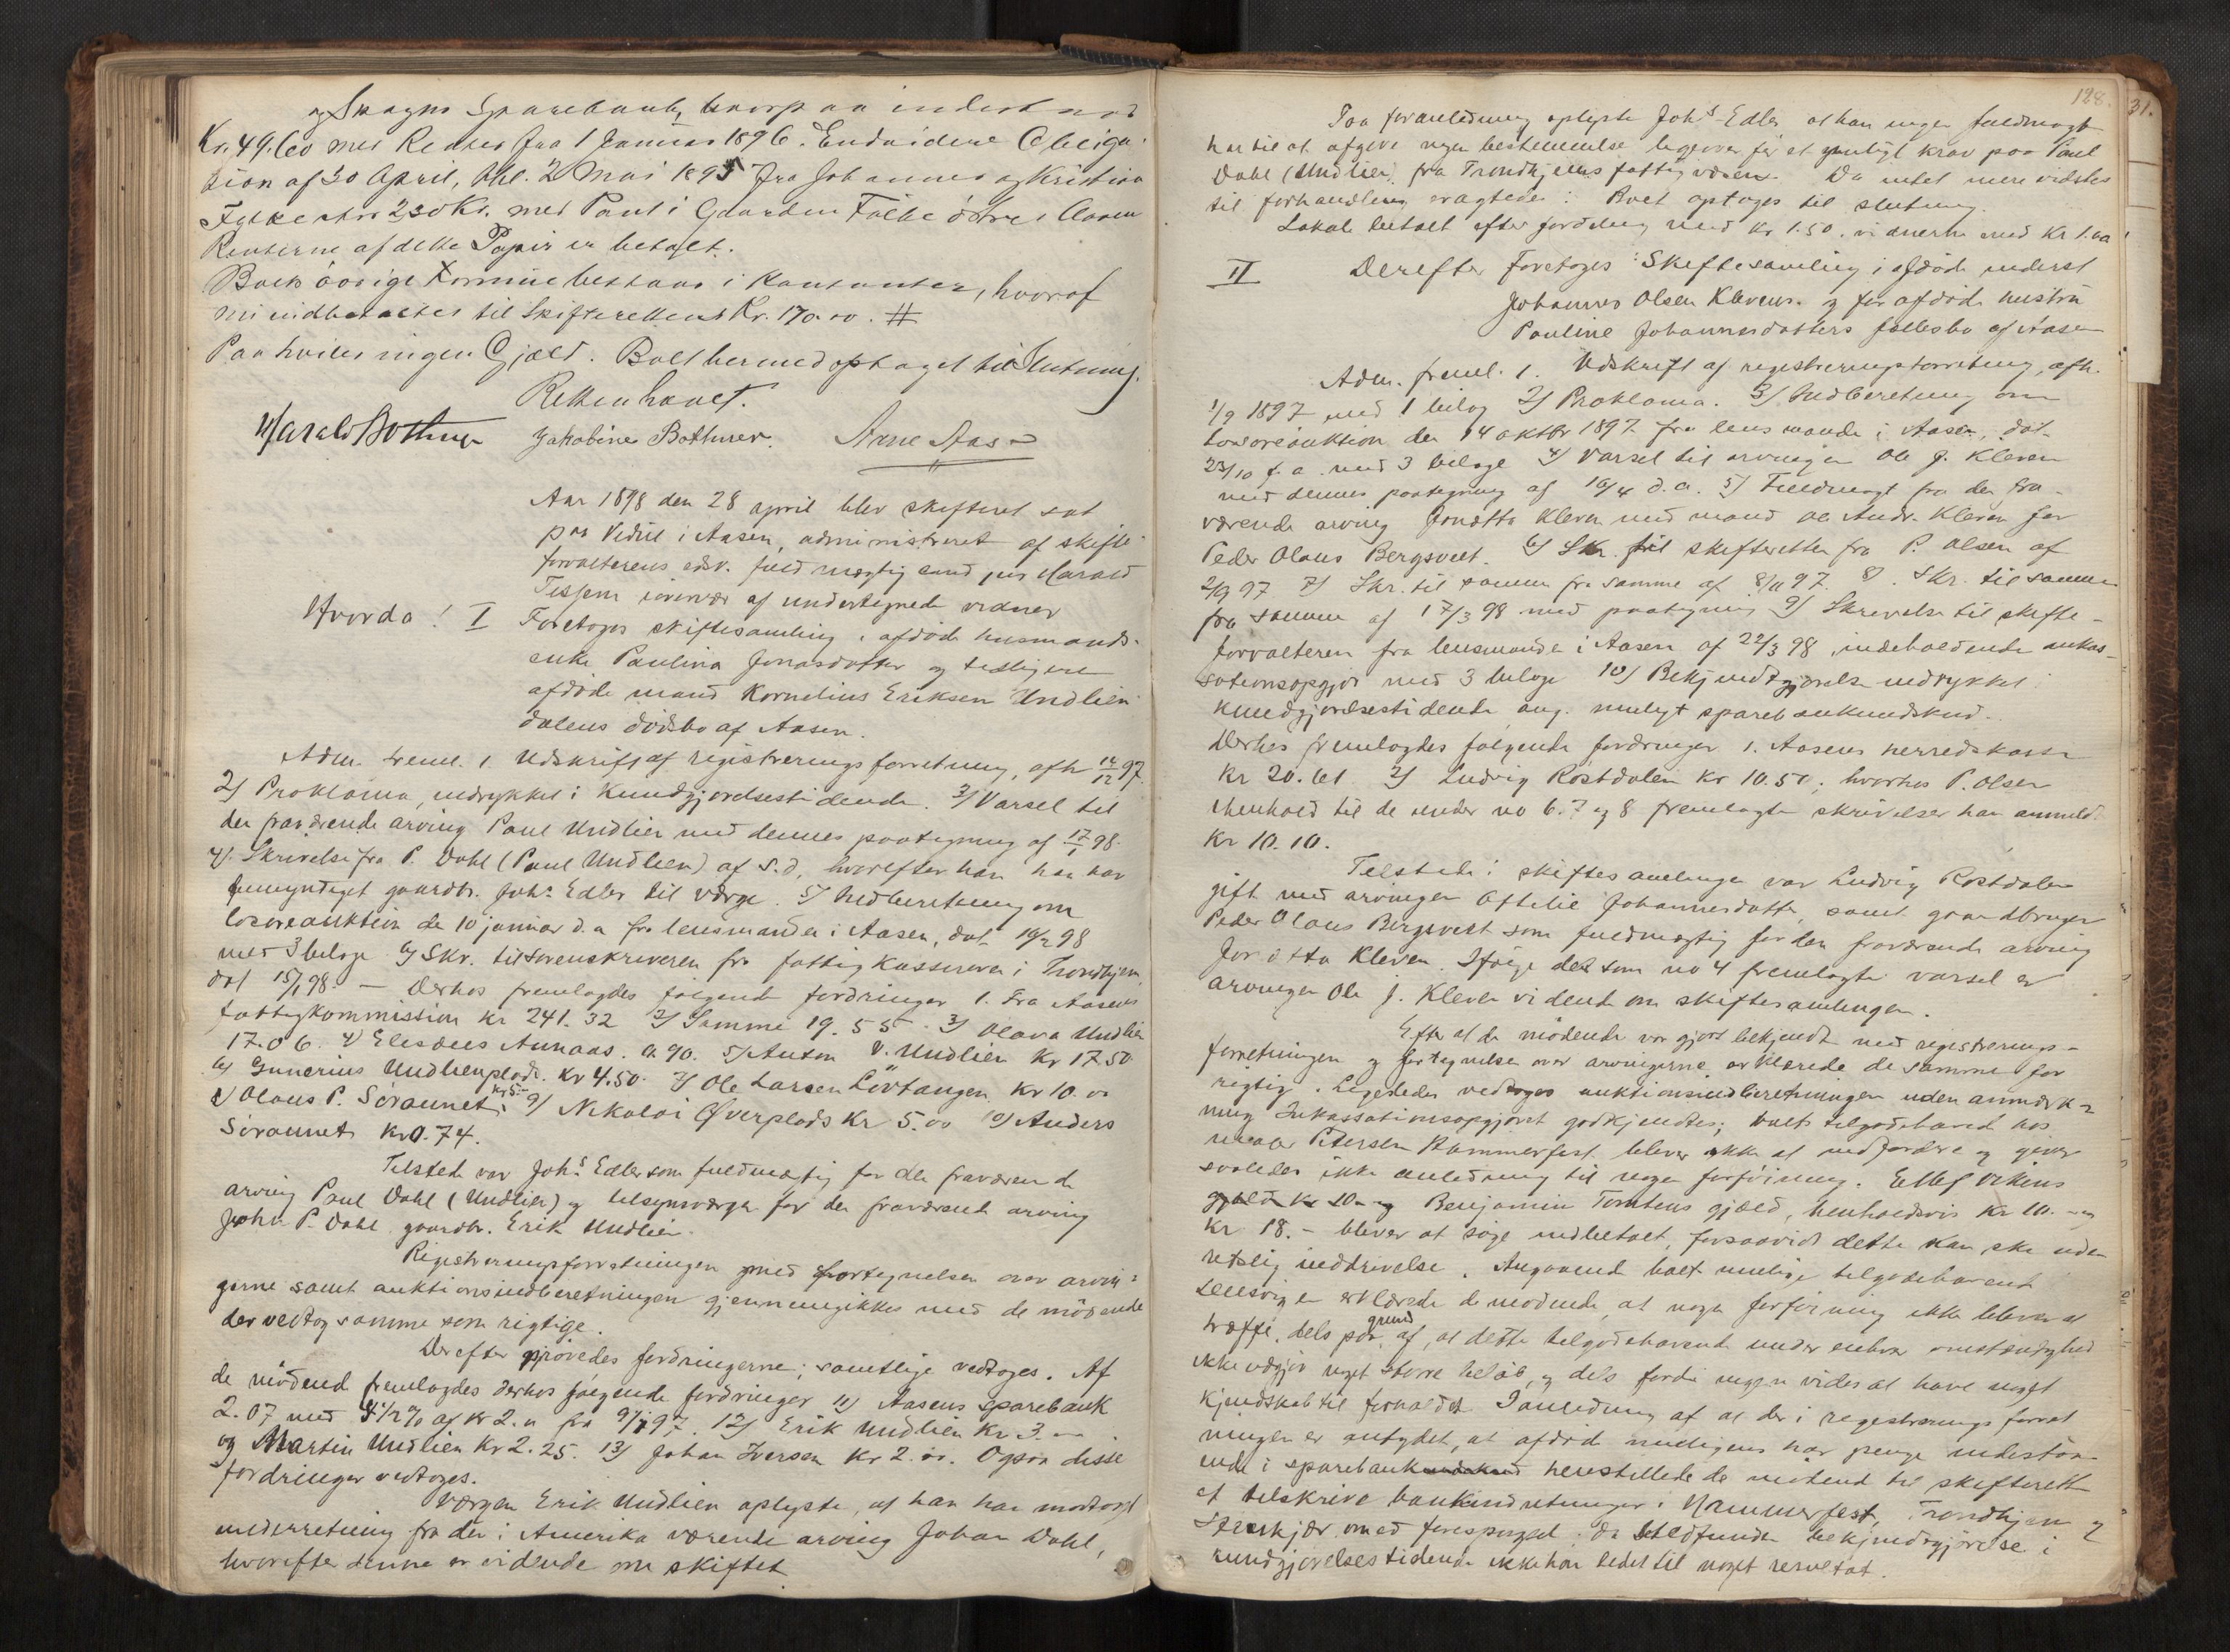 og Skogns Sparebank, hvorpaa indestod
Kr. 49.60 med Renter fra 1 Januar 1896. Endvidere Obliga-
tion af 30 April, thl. 2 Mai 1895 fra Johannes og Kristian
230 Kr. med Pant i Gaarden Falbe östre i Aasen
Renterne af dette Papir er betalt.
Boets övrige Formue bestaar i Kontanter, hvoraf
nu indbetaltes til Skifteretten Kr. 170.00. #
Paa hviler ingen Gjæld. Boet hermed optaget til Slutning.
Retten hævet.
Harald Bothner Jakobine Bothner. Arne Aas
Aar 1898 den 28 april blev skifteret sat
paa Vedul i Aasen, administreret af skifte-
forvalterens edsv. fuldmægtig cand jur Harald
Tessem i overvær af undertegnede vidner
Hvorda! I Foretoges skiftesamling i afdöde husmands-
enke Paulina Jonasdatter og tidligere
afdöde mand Kornelius Eriksen Undlien
dalens dödsbo af Aasen.
Adm. freml. 1. Udskrift af registreringsforretning, afh. 14/12 97.
2) Proklama, indrykket i Kundgjörelsestidende. 3) Varsel til
den fraværende arving Paul Undlien med dennes paategning af 17/1 98.
4). Skrivelse fra P. Dahl (Paul Undlien) af s.d, hvorefter han har
bemyndiget gaardbr. Johs Edler til værge. 5) Indberetning om
lösöreauktion den 10 januar d. a fra lensmanden i Aasen, dat. 10/2 98
med 3 bilage 6) Skr. til Sorenskriveren fra fattigkassereren i Trondhjem,
dat 15/1 98. — Derhos fremlagdes fölgende fordringer 1. Fra Aasens
fattigkommission kr 241.32 2) Samme 19.55. 3) Olava Undlien
17.06. 4) Elisæus Aunaas. 0.90. 5) Anton P. Undlien Kr 17.50
6) Gunerius Undlienplads. Kr 4.50. 7) Ole Larsen Lövtangen Kr 10.00
8) Olaus P. Söraunet kr 5- 9) Nikolai Overplads Kr 5.00 10) Anders
Söraunet Kr 0.74.
Tilstede var Johs Edler som fuldmægtig for den fraværende
arving Paul Dahl (Undlien) og tilsynsværge for den fraværende arving
John P. Dahl gaardbr. Erik Undlien.
Registreringsforretningen med fortegnelsen over arvin-
gerne samt auktionsindberetningen gjennemgikkes med de mödende
der vedtog samme som rigtige.
Derefter prövedes fordringerne; samtlige vedtoges. Af
de mödende fremlagdes derhos fölgende fordringer 11) Aasens sparebank
2.07 med 4 1/2 % af kr 2.00 fra 9/7 97. 12) Erik Undlien Kr 3.—
og Martin Undlien Kr 2.25. 13) Johan Iversen Kr 2.00. Ogsaa disse
fordringer vedtoges.
Værgen Erik Undlien oplyste, at han har modtaget
underretning fra den i Amerika værende arving Johan Dahl,
hvorefter denne er vidende om skiftet
128.
31.
Paa foranledning oplyste Johs Edler at han ingen fuldmagt
har til at afgive nogen bestemmelse ligeover for et muligt krav paa Paul
Dahl (Undlien) fra Trondhjems fattigvæsen. Da intet mere vidstes
til forhandling eragtedes: Boet optages til slutning.
Lokale betalt efter fordeling med kr 1.50. vidnerne med Kr 1.00
II Derefter foretoges: Skiftesamling i afdöde inderst
Johannes Olsen Klevens og for afdöde hustru
Pauline Johannesdatters fællesbo af Aasen
Adm. freml. 1. Udskrift af registreringsforretning, afh.
1/9 1897 med 1 bilag 2) Proklama. 3) Indberetning om
lösöreauktion den 14 oktbr 1897 fra lensmanden i Aasen, dat.
23/10 f. a. med 3 bilage 4) Varsel til arvingen Ole J. Kleven
med dennes paategning af 16/4 d. a. 5) Fuldmagt fra den fra-
værende arving Jonetta Kleven med mand Ole Andr. Kleven for
Peder Olaus Bergsvedt. 6) Skr. til skifteretten fra P. Olsen af
2/9 97 7) Skr. til samme fra samme af 8/11 97. 8). Skr. til samme
fra samme af 17/3 98 med paategning 9) Skrivelse til skifte-
forvalteren fra lensmanden i Aasen af 22/3 98, indeholdende inkas-
sationsopgjör med 3 bilage 10) Bekjendtgjörelse indrykket i
Kundgjörelsestidende ang. muligt sparebankindskud.
Derhos fremlagdes fölgende fordringer 1. Aasens herredskasse
Kr 20.61 2) Ludvig Röstdalen kr 10.50; hvorhos P. Olsen
i henhold til de under no 6. 7 og 8 fremlagte skrivelser har anmeldt
Kr 10.10.
Tilstede i skiftesamlingen var Ludvig Röstdalen
gift med arvingen Ottilie Johannesdatter, samt gaardbruger
Peder Olaus Bergsvedt som fuldmægtig for den fraværende arving
Jonetta Kleven. Ifölge det som no 4 fremlagte varsel er
arvingen Ole J. Kleven vidende om skiftesamlingen.
Efter at de mödende var gjort bekjendt med registrerings-
forretningen og fortegnelse over arvingerne, erklærede de samme for
rigtig. Ligeledes vedtoges auktionsindberetningen uden anmærk-
ning Inkassationsopgjöret godkjendtes; boets tilgodehavende hos
Petersen Hammerfest bliver ikke at indfordre og giver
saaledes ikke anledning til nogen forföining. Ellef Vikens
gjæld kr 10.- og Benjamin Tomtens gjæld, henholdsvis kr 10.- og
Kr 18.- bliver at söge indbetalt, forsaavidt dette kan ske uden
retslig inddrivelse. Angaaende boets mulige tilgodehavende
erklærede de mödende, at nogen forföining ikke bliver at
træffe, dels paa grund af, at dette tilgodehavende under enhver omstændighed
ikke udgjör noget större belöb, og dels fordi ingen vides at have noget
kjendskab til forholdet. I anledning af at der i registreringsforret
ningen er antydet, at afdöde muligens har penge indestaa-
ende i sparebank henstillede de mödende til skifteretten
at tilskrive bankindretninger i Hammerfest, Trondhjem og
Stenkjær med forespörgsel. da stedfunden bekjendtgjörelse i
kundgjörelsestidende ikke har ledet til noget resultat.